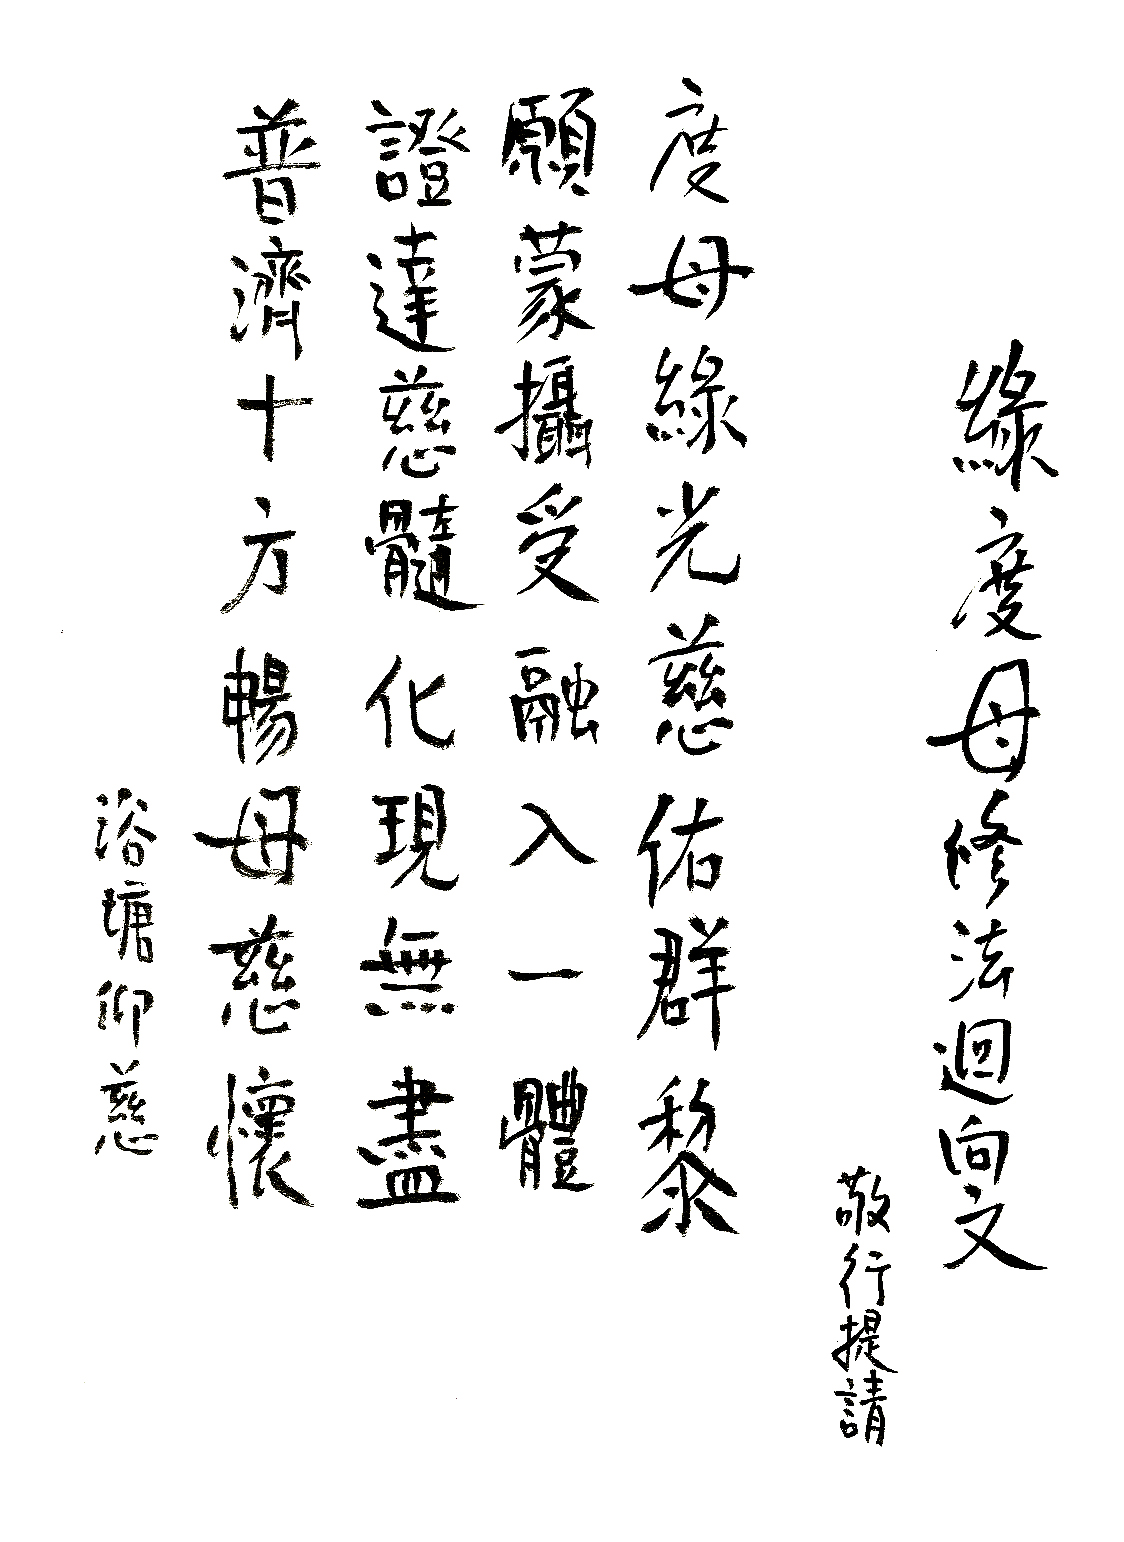 綠度母修法迴向文
敬行提請
度母綠光慈佑群黎
願蒙攝受融入一體
證達慈髓化現無盡
普濟十方暢母慈懷
浴瑭仰慈